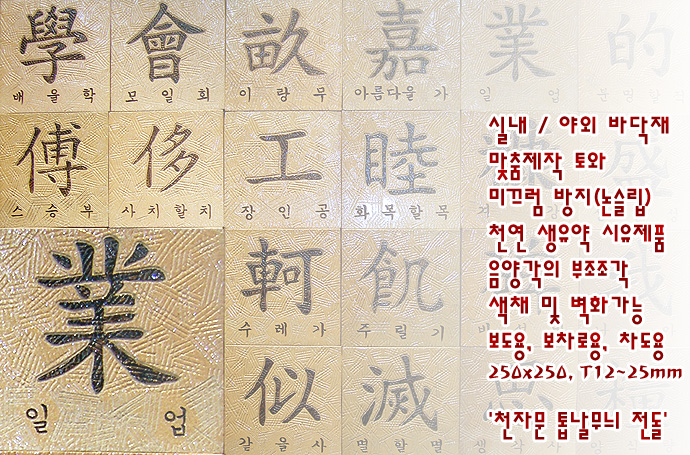 學 會 畝 嘉 業 的
배울학 모일회 이랑무 아름다울가 일 업
傅 侈 工 睦
스승부 사치할치 장인공 화목할목
業
일 업
軻 飢
수레가 주릴기
似 滅
같을사 멸할멸
실내 / 야외 바닥재
맞춤제작 토와
미끄럼 방지(논슬립)
천연 생유약 시유제품
음양각의 부조조각
색채 및 벽화가능
보도용, 보차로용, 차도용
250x250, T12~25mm
'천자문 톱날무늬 전돌'